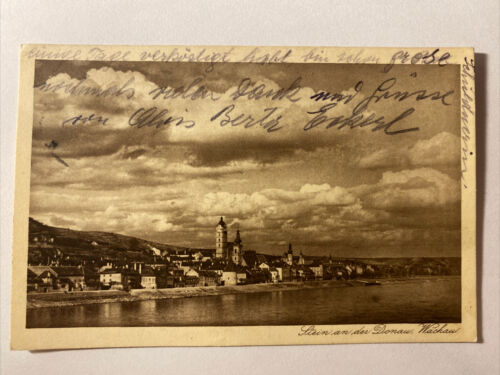 Tage verköstigt habt bin schon große
nochmals vielen Dank und Grüsse
von Alois Bertz Eckerl
Stein an der Donau, Wachau